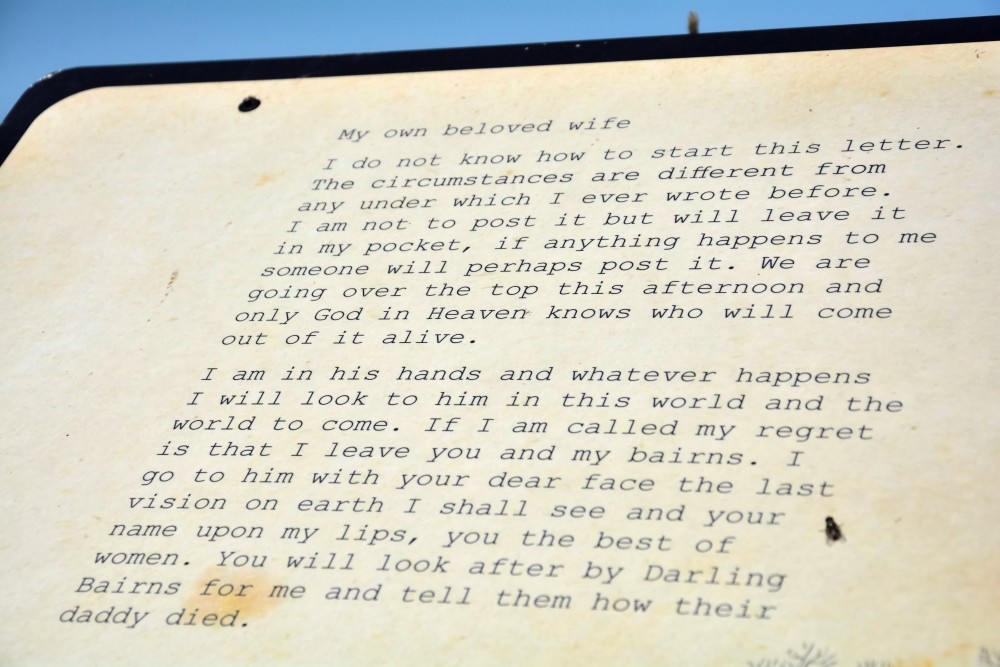 My own beloved wife
I do not know how to start this letter.
The circumstances are different from
any under which I ever wrote before.
I am not to post it but will leave it
in my pocket, if anything happens to me
someone will perhaps post it. We are
going over the top this afternoon and
only God in Heaven knows who will come
out of it alive.
I am in his hands and whatever happens
I will look to him in this world and the
world to come. If I am called my regret
is that I leave you and my bairns. I
go to him with your dear face the last
vision on earth I shall see and your
name upon my lips, you the best of
women. You will look after by Darling
Bairns for me and tell them how their
daddy died.